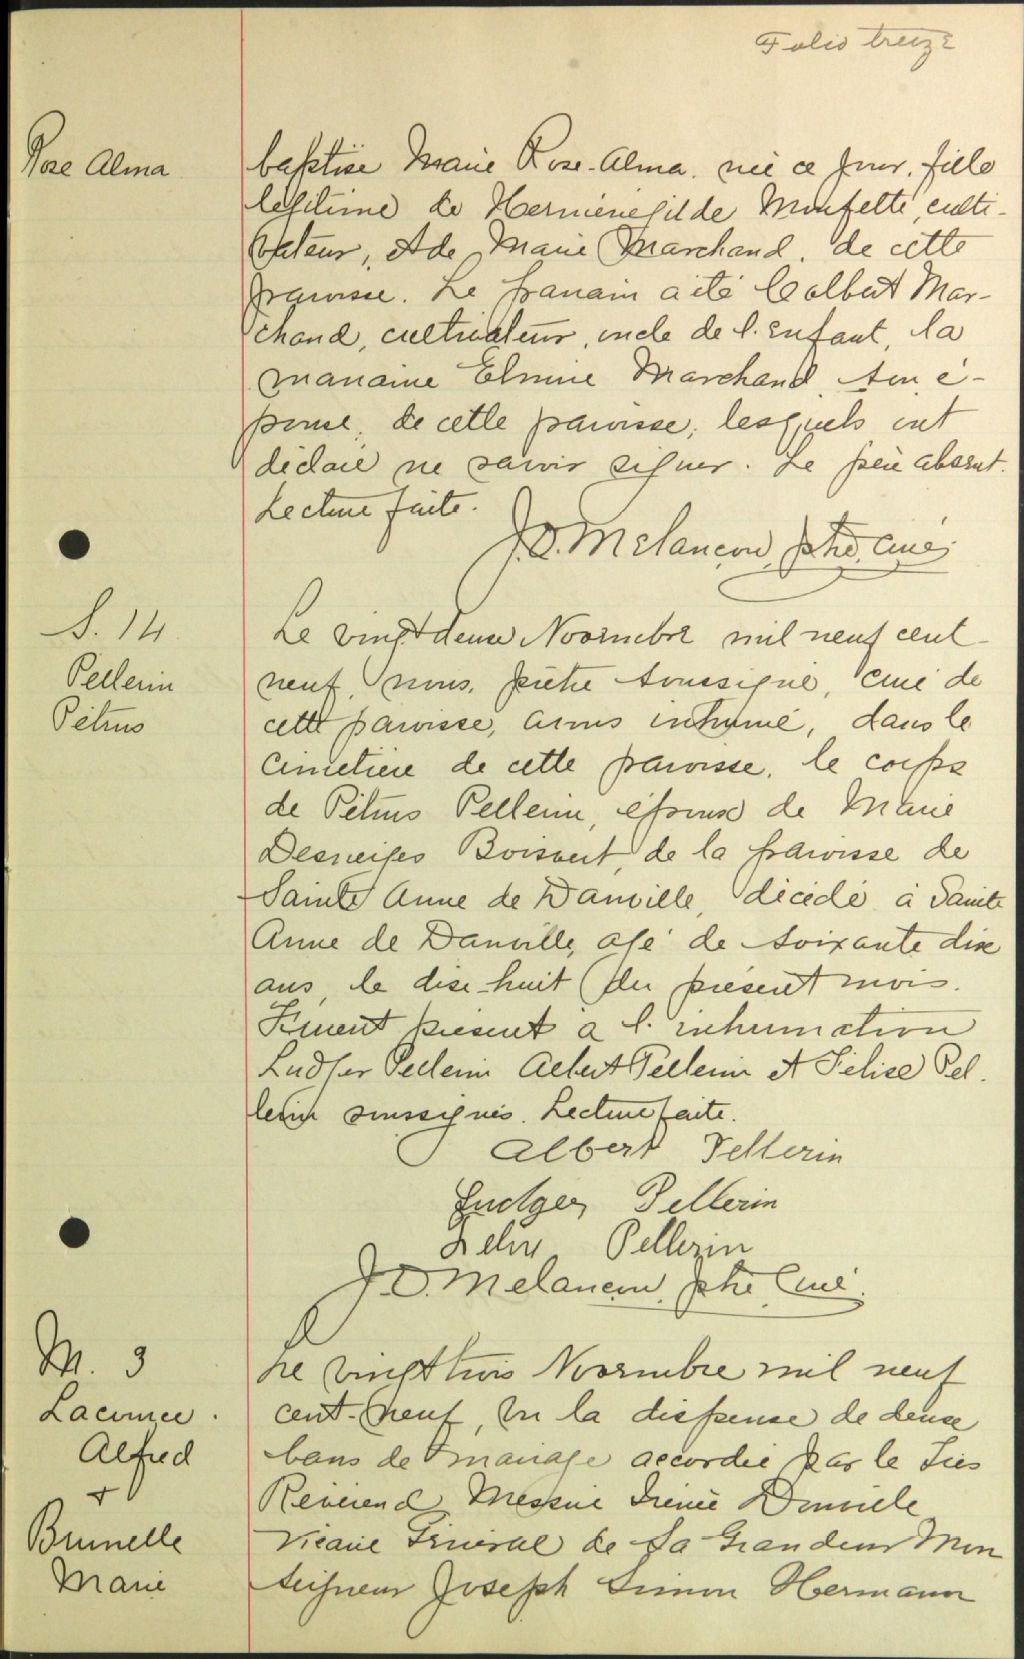 Folio treize
Rose Alma
baptisé Marie Rose-Alma. née ce jour, fille
légitime de Herménégilde Monfette, culti-
vateur, et de Marie Marchand, de cette
paroisse. Le parrain a été Colbert Mar-
chand, cultivateur, oncle de l'enfant, la
marraine Elmire Marchand son é-
pouse, de cette paroisse; lesquels ont
déclaré ne savoir signer. Le père absent.
Lecture faite.
J.O. Melançon, ptre, curé.
S. 14
Pellerin
Pétrus
Le vingt deux Novembre mil neuf cent-
neuf, nous, prêtre soussigné, curé de
cette paroisse, avons inhumé, dans le
cimetière de cette paroisse, le corps
de Pétrus Pellerin, époux de Marie
Desneiges Boisvert, de la paroisse de
Sainte Anne de Danville, décédé à Sainte
Anne de Danville, agé de soixante dix
ans, le dix-huit du présent mois.
Furent présents à l'inhumation
Ludger Pellerin Albert Pellerin et Félix Pel-
lerin soussignés. Lecture faite.
Albert Pellerin
Ludger Pellerin
Felix Pellerin
J.O. Melançon, ptre Curé.
M. 3
Lacource.
Alfred
+
Brunelle
Marie
Le vingt trois Novembre mil neuf
cent-neuf, vu la dispense de deux
bans de mariage accordée par le Très
Révérend Messire Irénée Douville
Vicaire Général de Sa Grandeur Mon
seigneur Joseph Simon Hermann